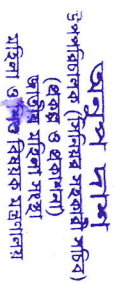 অনুপ দাশ
উপপরিচালক (সিনিয়র সহকারী সচিব)
(প্রকল্প ও প্রকাশনা)
জাতীয় মহিলা সংস্থা
মহিলা ও শিশু বিষয়ক মন্ত্রণালয়